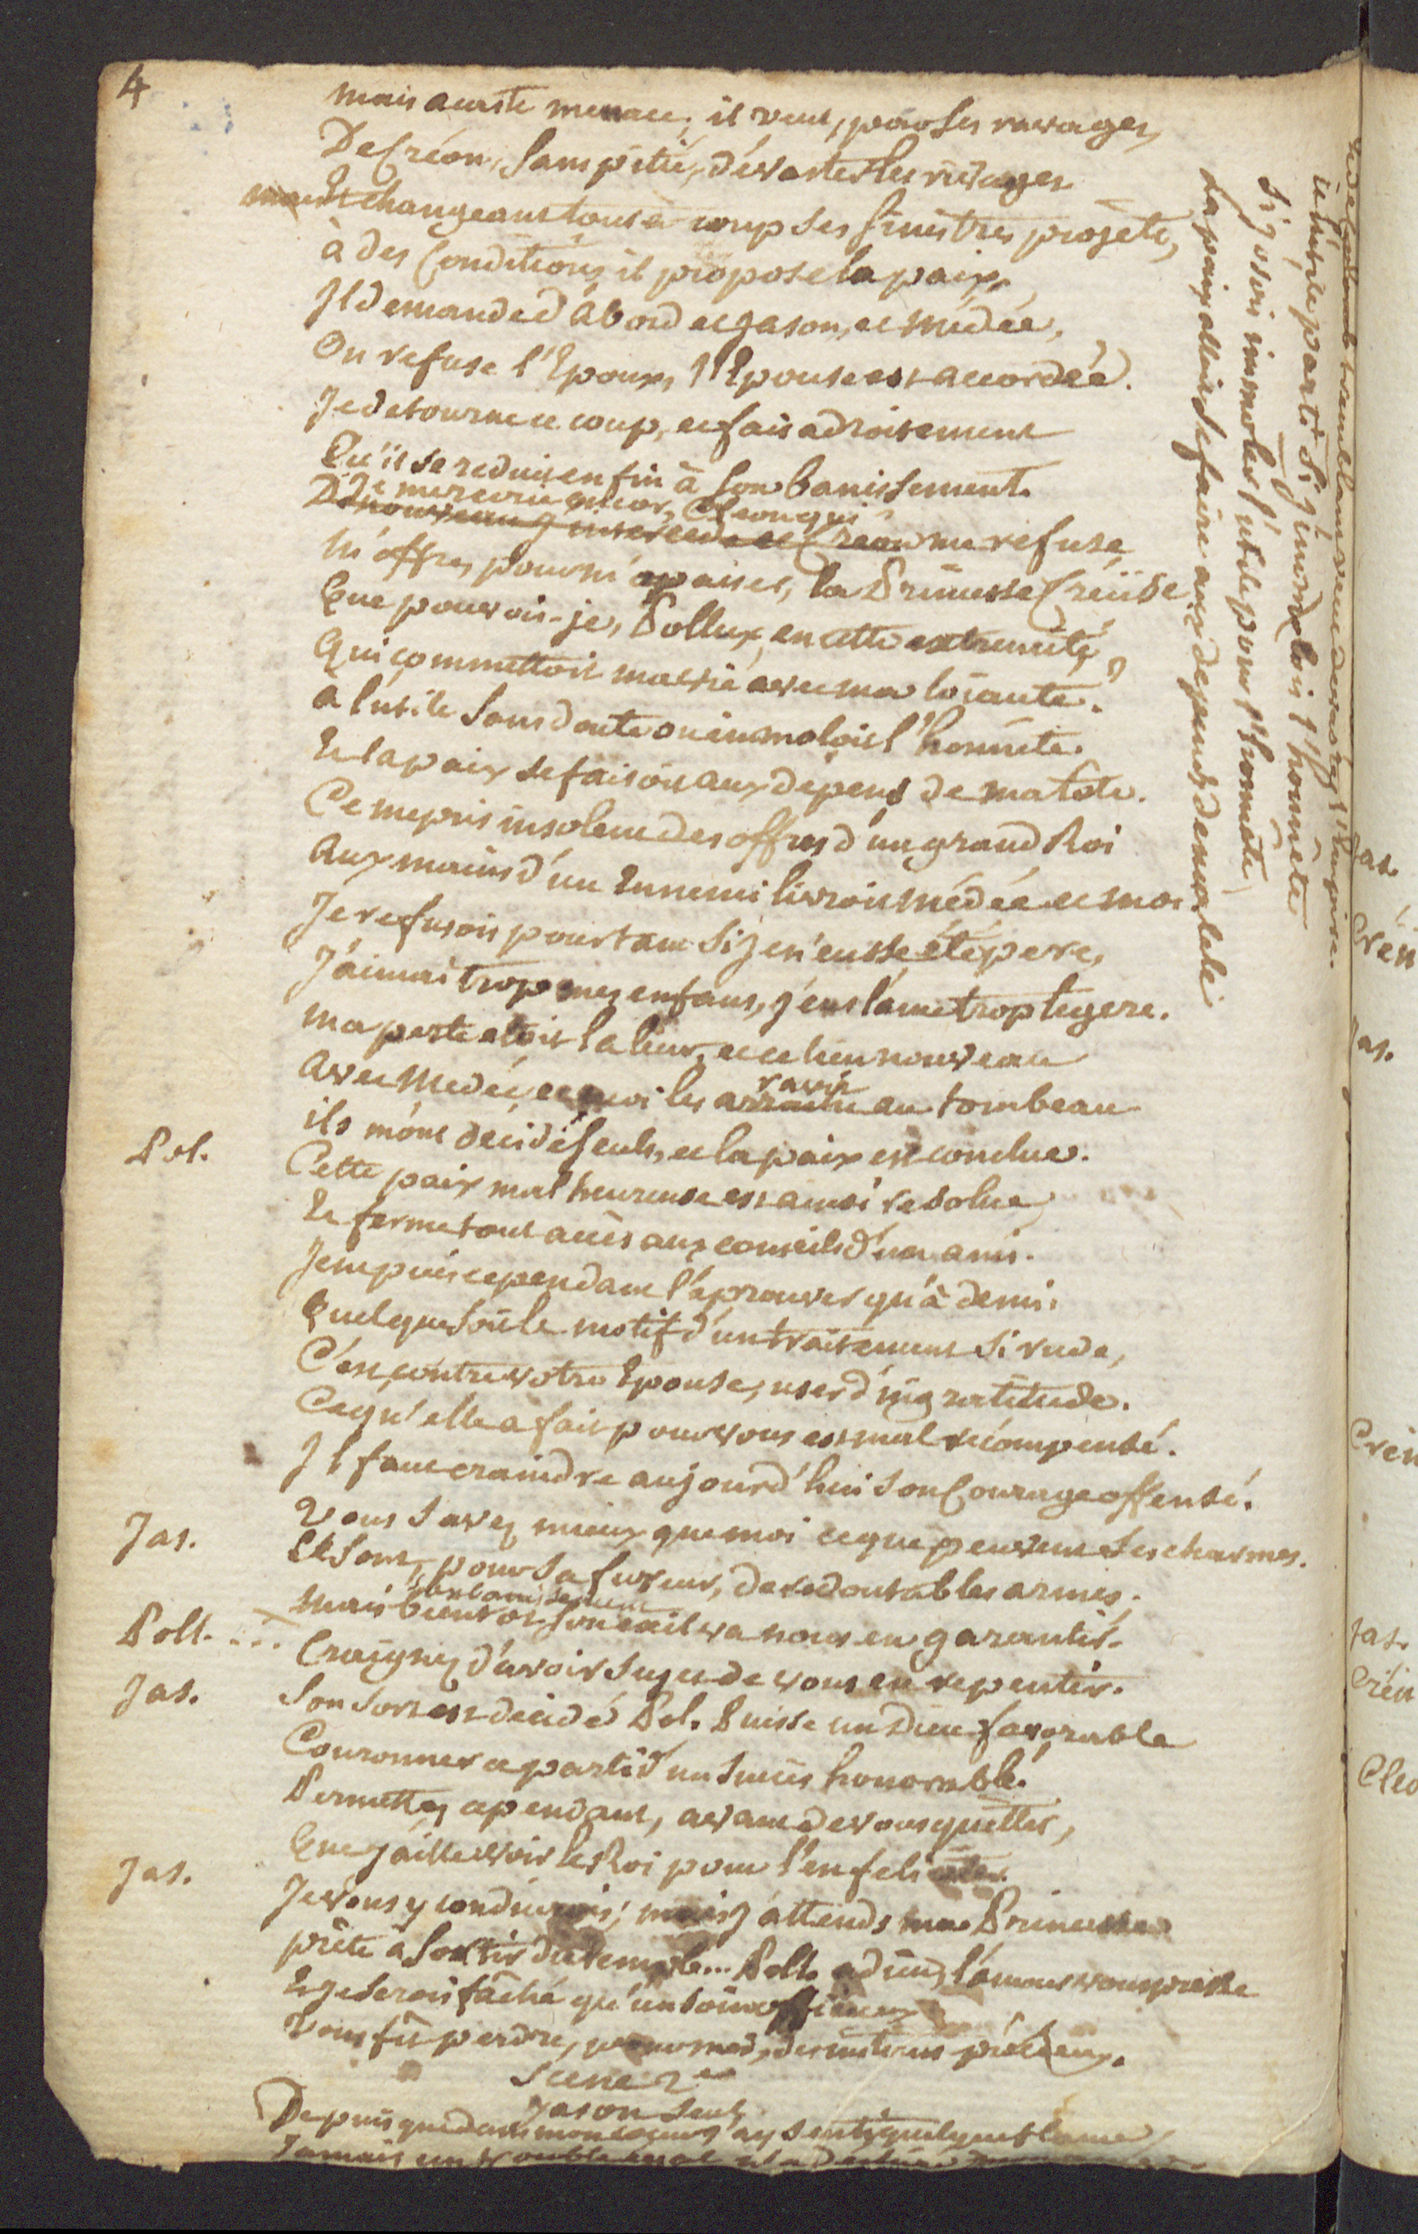 4
mais Acaste menace; il veut, par ses ravages,
De Créon, sans pitié, dévaster les rivages
Et changeant tout à coup ses sinistres projets,
à des Conditions il propose la paix,
Il demande d'abord et Jason, et Médée,
On refuse l'Epoux, l'Epouse est accordée.
Je detourne ce coup, et fais adroitement
Qu'il se reduit enfin à son banissement.
De nouveau j'intercede et Créon me refuse,
M'offre, pour m'apaiser, la Princesse Créüse
Que pouvois-je, Pollux, en cette extremité,
Qui commettoit ma vie avec ma loiauté?
a l'utile sans doute on immoloit l'honnête.
Et la paix se faisoit aux dépens de ma tête.
Ce mepris insolent des offres d'un grand Roi
Aux mains d'un Ennemi livroit Médée et moi
Je refusois pourtant si je n'eusse été pere,
J'aimai trop mes enfans, j'eus l'ame trop legere.
ma perte etoit la leur, et ce lien nouveau
Avec Medée et moi les ravit au tombeau
ils m'ont decidé seuls, et la paix est conclue.
Pol. Cette paix malheureuse est ainsi resolue,
Et ferme tout accès aux conseils d'un ami.
Je ne puis cependant l'éprouver qu'à demi.
Quelque soit le motif d'un traitement si rude,
C'est, contre votre Epouse, user d'ingratitude.
Ce qu'elle a fait pour vous est mal récompensé.
Il faut craindre aujourd'hui son Courage offensé.
Vous savez mieux que moi ce que peuvent ses charmes.
Jas. Ils sont, pour sa fureur, de redoutables armes;
son banissement
mais bientôt son exil va nous en garantir.
Poll. ... Craignez d'avoir sujet de vous en repentir.
Jas. Son sort est decidé Pol. Puisse un Dieu favorable
Couronner ce parti d'un succès honorable!
Permettez cependant, avant de vous quitter,
Que j'aille voir le Roi pour l'en feliciter.
Jas. Je vous y conduirois; mais j'attends ma Princesse
prête à sortir du temple... Poll. adieu, l'amour vous presse
Et je serois fâché qu'un soin officieux
Vous fît perdre, pour moi, des instans précieux.
Scene 2e
Jason seul
Depuis que dans mon coeur ay senti quelque flame,
Jamais un trouble egal
inutile parti si j'immolois l'honnête
Si j'osois immoler l'utile pour l'honnête
La paix alloit se faire aux depends de ma tête
Jas.
Crén
Jas.
Crén
Jas.
Crén
Cleo